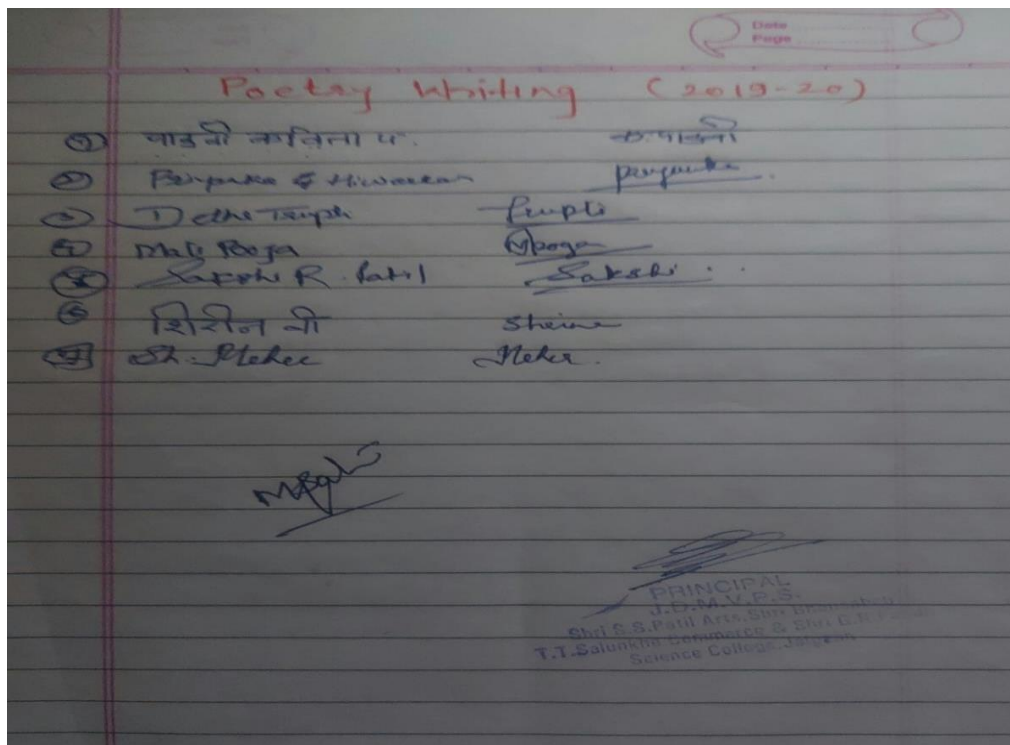 Date
Page
Poetry Writing (2019-20)
१ पाडवी कविता प. क.पाडवी
२ Priyanka Hiwarkar Priyanka
३ Trupti
४ Mali Pooja MPooja
५ Sakshi R. Patil Sakshi
६ शिरीन बी
७ Sh. Meher Meher.
PRINCIPAL
J.D.M.V.P.S.
Shri S.S.Patil Arts, Shri Bhausaheb
T.T.Salunkhe Commerce & Shri G.R.
Science College, Jalgaon